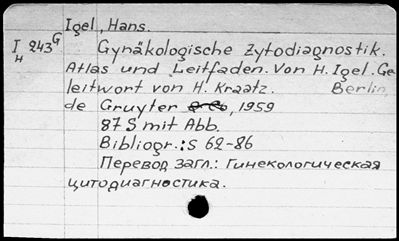 Igel, Hans.
I H 243 G Gynäkologische Zytodiagnostik.
Atlas und Leitfaden. Von H. Igel. Ge
leitwort von H. Kraatz. Berlin,
de Gruyter, 1959
87 S mit Abb.
Bibliogr.: S 62-86
Перевод загл.: Гинекологическая
цитодиагностика.